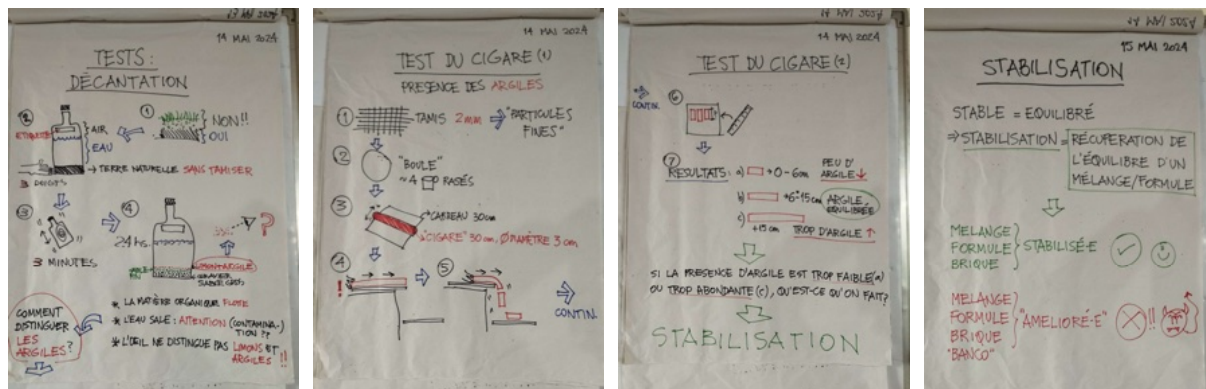 14 MAI 2024
TESTS:
DÉCANTATION
②
①
NON!!
OUI
AIR
EAU
→ TERRE NATURELLE SANS TAMISER
3 DOIGTS
③
④
24 hs.
?
3 MINUTES
LIMON+ARGILE
* LA MATIÈRE ORGANIQUE FLOTE
* L'EAU SALE: ATTENTION (CONTAMINA-
TION ??
* L'OEIL NE DISTINGUE PAS LIMONS ET
ARGILES !!
COMMENT
DISTINGUER
LES
ARGILES?
14 MAI 2024
TEST DU CIGARE (1)
PRESENCE DES ARGILES
① TAMIS 2mm → "PARTICULES
FINES"
② "BOULE"
~4 RASÉS
③ CARREAU 30cm
"CIGARE" 30cm, ØIAMÈTRE 3 cm
④ ⑤
!
CONTIN.
14 MAI 2024
TEST DU CIGARE (2)
CONTIN.
⑥
⑦
RESULTATS: a) → 0-6cm PEU D'
ARGILE ↓
b) → 6-15cm ARGILE
EQUILIBRÉE
c) +15cm TROP D'ARGILE ↑
SI LA PRESENCE D'ARGILE EST TROP FAIBLE (a)
OU TROP ABONDANTE (c), QU'EST-CE QU'ON FAIT?
STABILISATION
15 MAI 2024
STABILISATION
STABLE = EQUILIBRÉ
⇒ STABILISATION = RÉCUPERATION DE
L'ÉQUILIBRE D'UN
MÉLANGE/FORMULE
MELANGE
FORMULE
BRIQUE
STABILISÉ-E
MELANGE
FORMULE
BRIQUE
"BANCO"
"AMELIORÉ-E"
!!